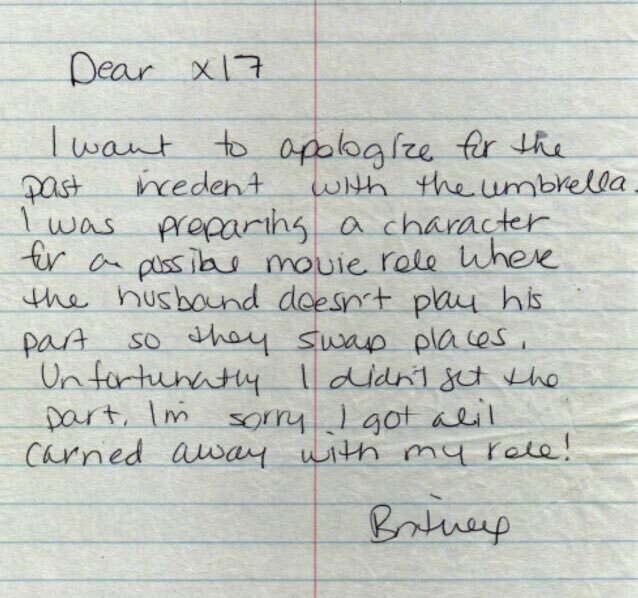 Dear x17
I want to apologize for the
past incedent with the umbrella.
I was preparing a character
for a possible movie role where
the husband doesn't play his
part so they swap places.
Unfortunatly I didn't get the
part. Im sorry I got alil
carried away with my role!
Britney